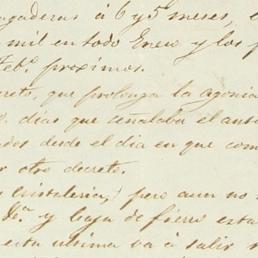 pagaderas á 6 y 5 meses,
mil en todo Enero y los p
Feb.º proximos.
creto, que prolonga la agonia
dias que señalaba el anti
ados desde el dia en que com
r otro decreto.
cristaleria, pero aun no
D.ª y baja de fierro esta
esta ultima vá á salir